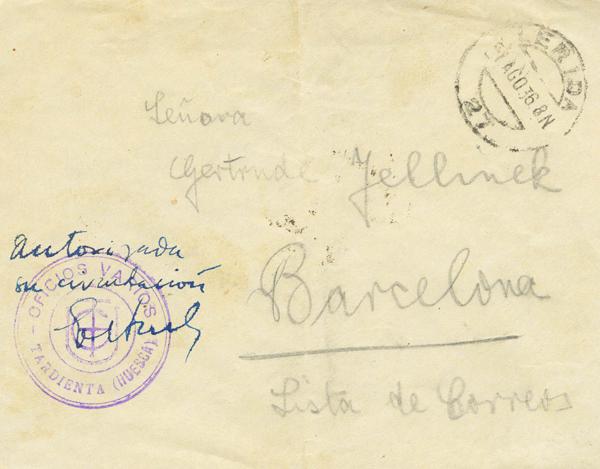 LERIDA
27 AGO 36. 8N
Señora
Gertrude Jellinek
Autorizada
su circulación
OFICIOS VARIOS
TARDIENTA (HUESCA)
Barcelona
Lista de Correos